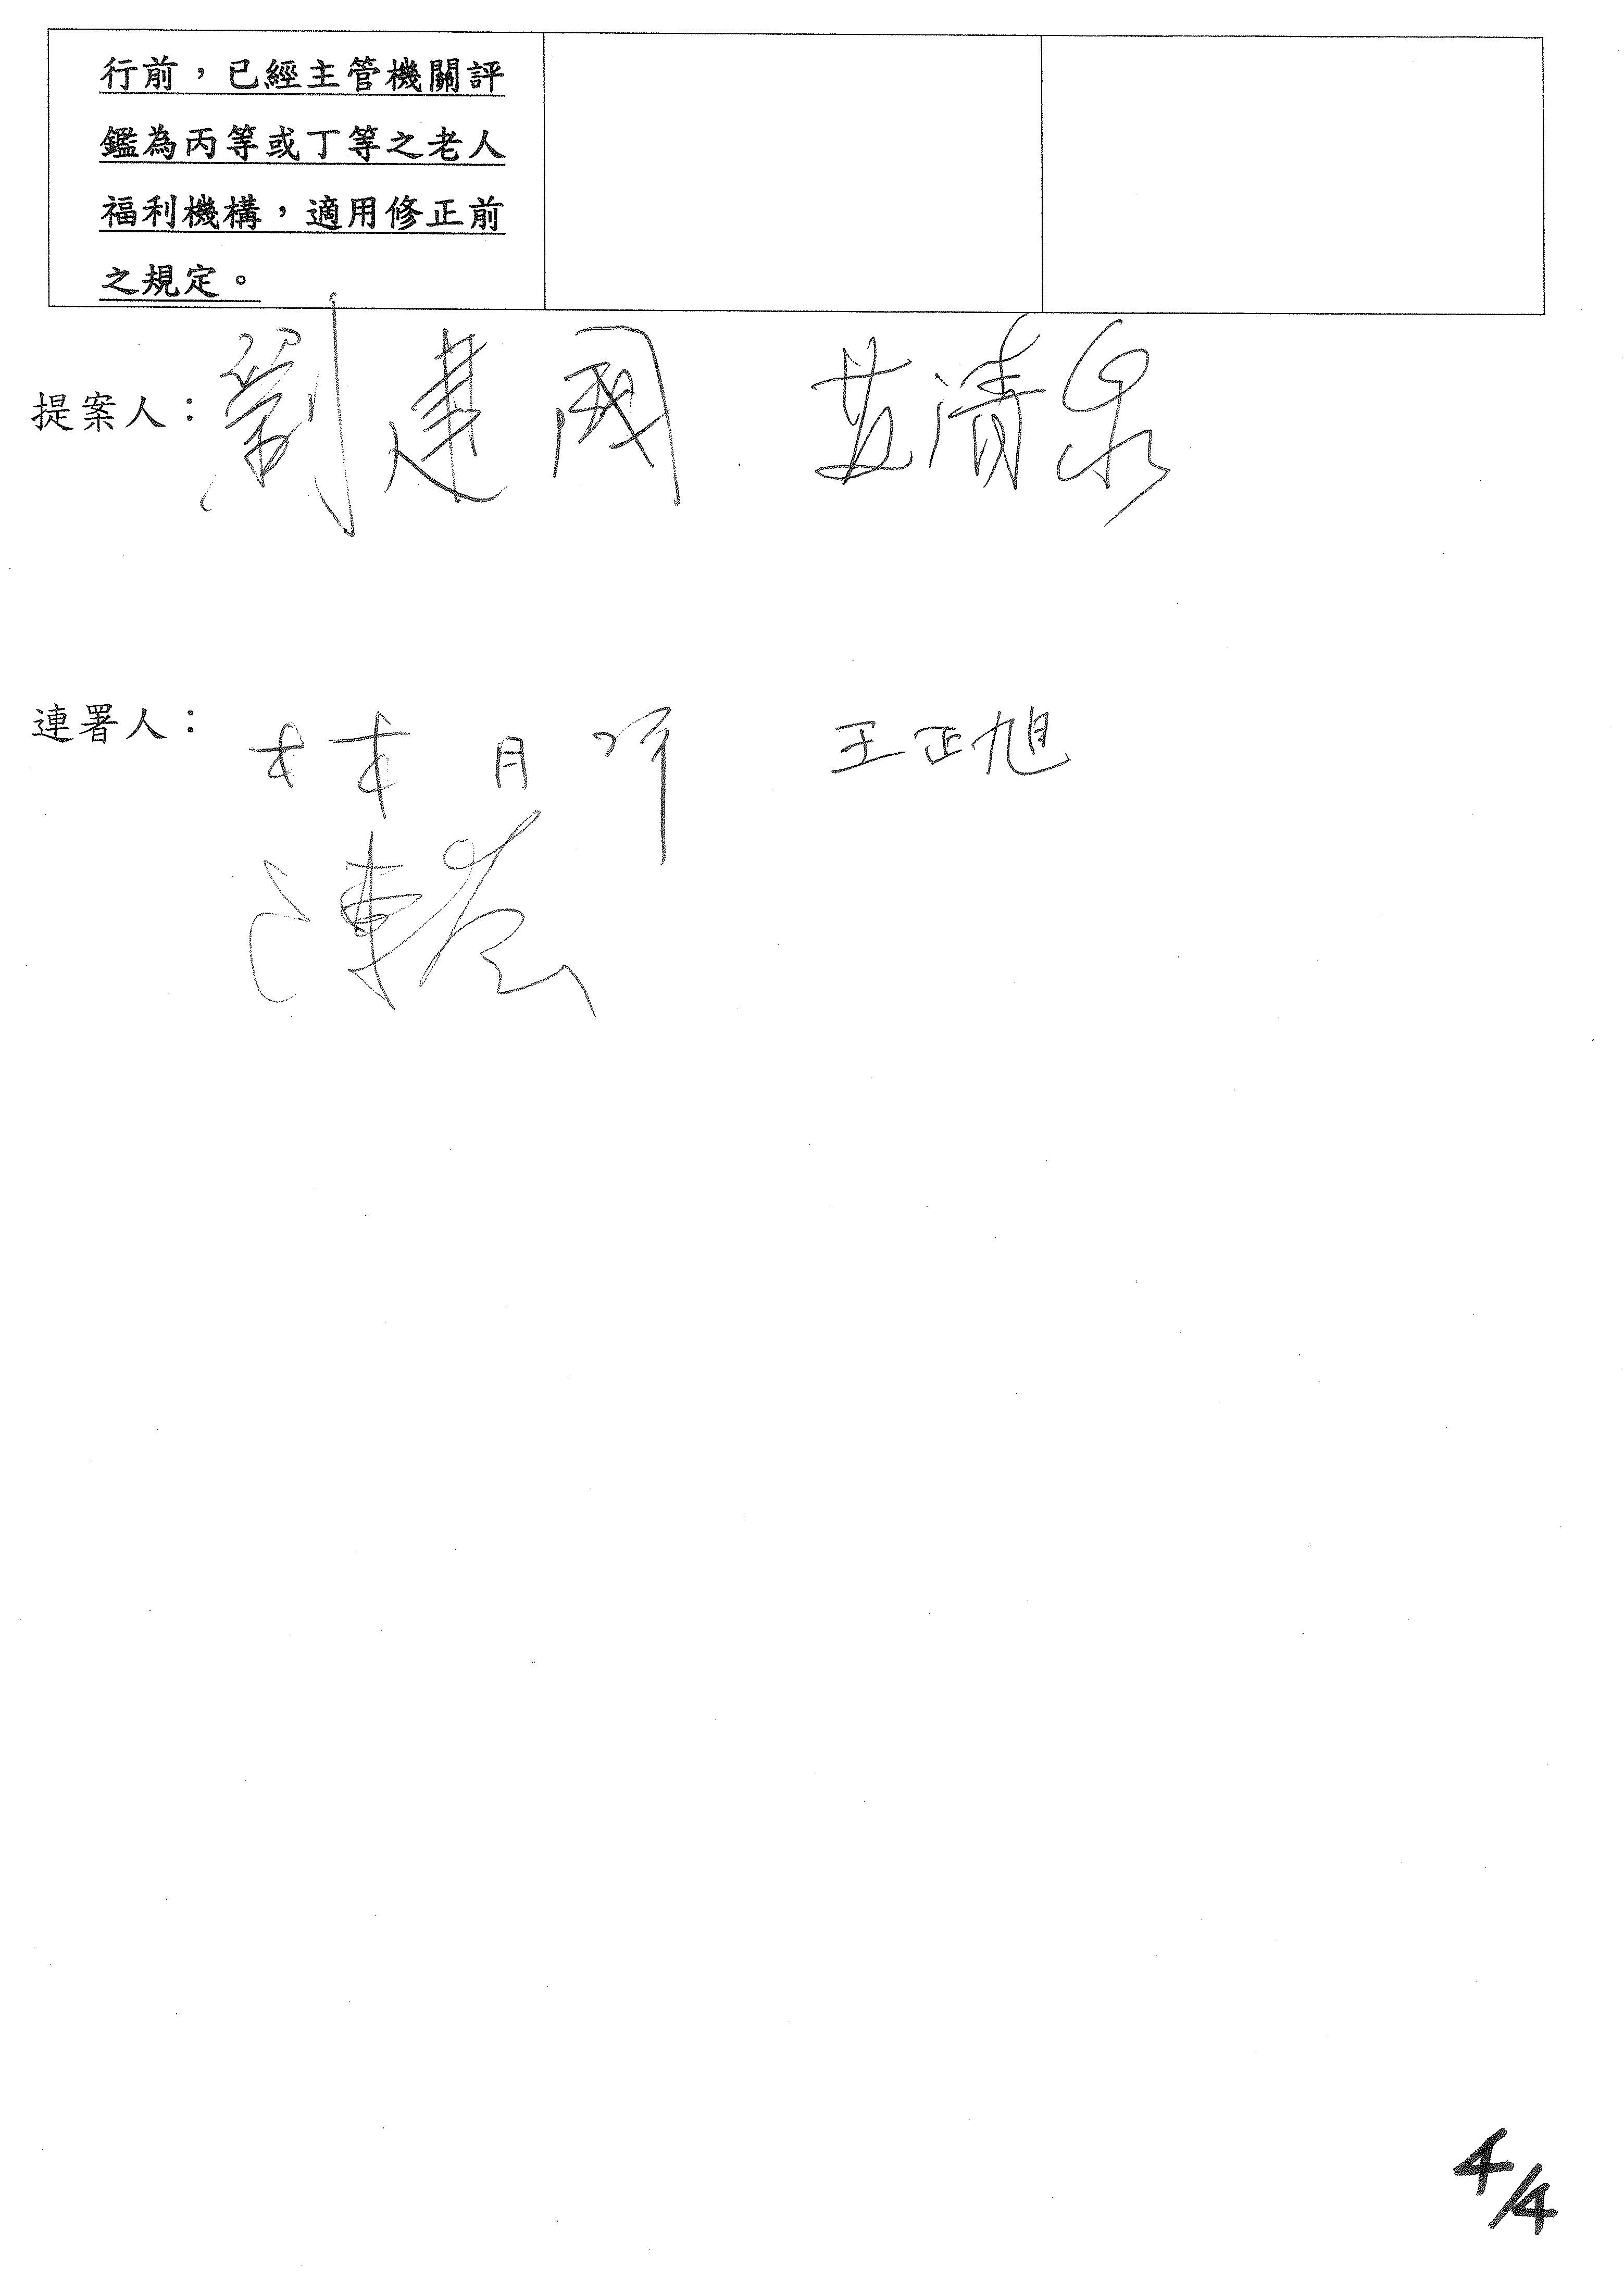 行前，已經主管機關評
鑑為丙等或丁等之老人
福利機構，適用修正前
之規定。
提案人： 劉建國 蘇清泉
連署人： 林月琴 王正旭
4/4